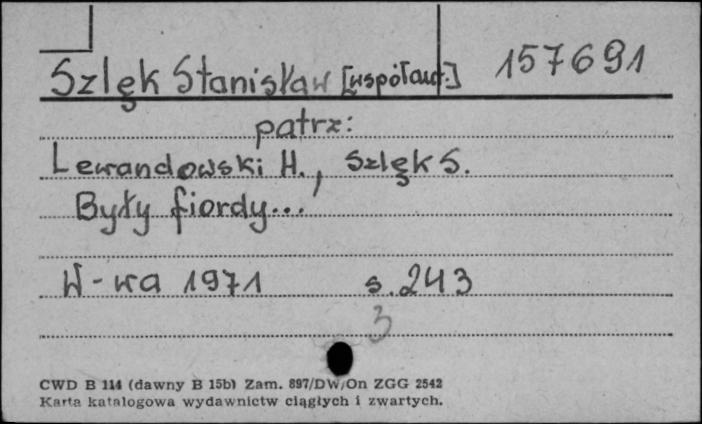 Szlęk Stanisław [współaut.] 157691
patrz:
Lewandowski H., Szlęk S.
Były fiordy...
W-wa 1971 s. 243
3
CWD B 114 (dawny B 15b) Zam. 897/DW/On ZGG 2542
Karta katalogowa wydawnictw ciągłych i zwartych.